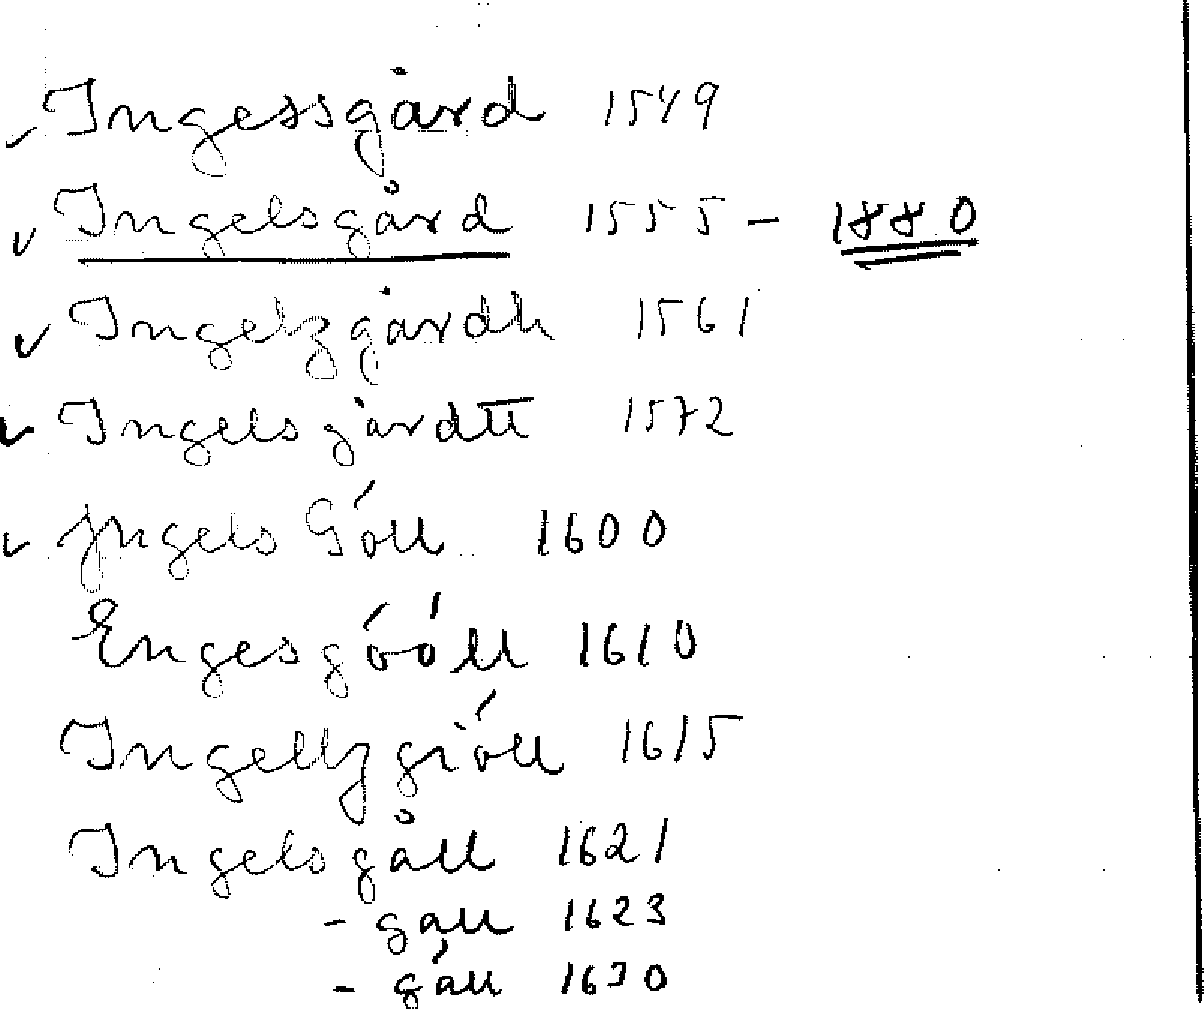 ✓ Ingessgård 1549
✓ Ingelsgård 1555 - 1880
✓ Ingelzgårdh 1561
✓ Ingelsgårdtt 1572
✓ Jngels Góll 1600
Engesgóóll 1610
Ingellzgióll 1615
Ingelsgåll 1621
- gall 1623
- gáll 1630